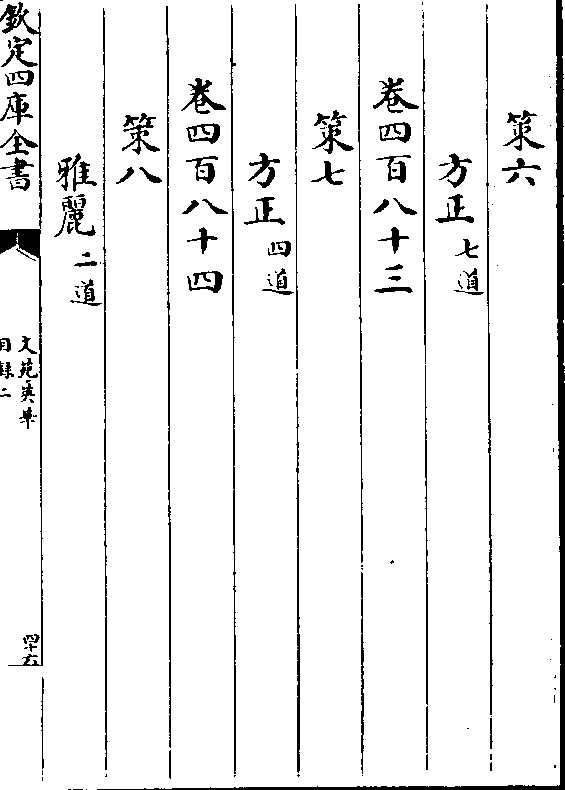 策六
方正七道
卷四百八十三
策七
方正四道
卷四百八十四
策八
雅麗二道
欽定四庫全書
文苑英華
目錄二